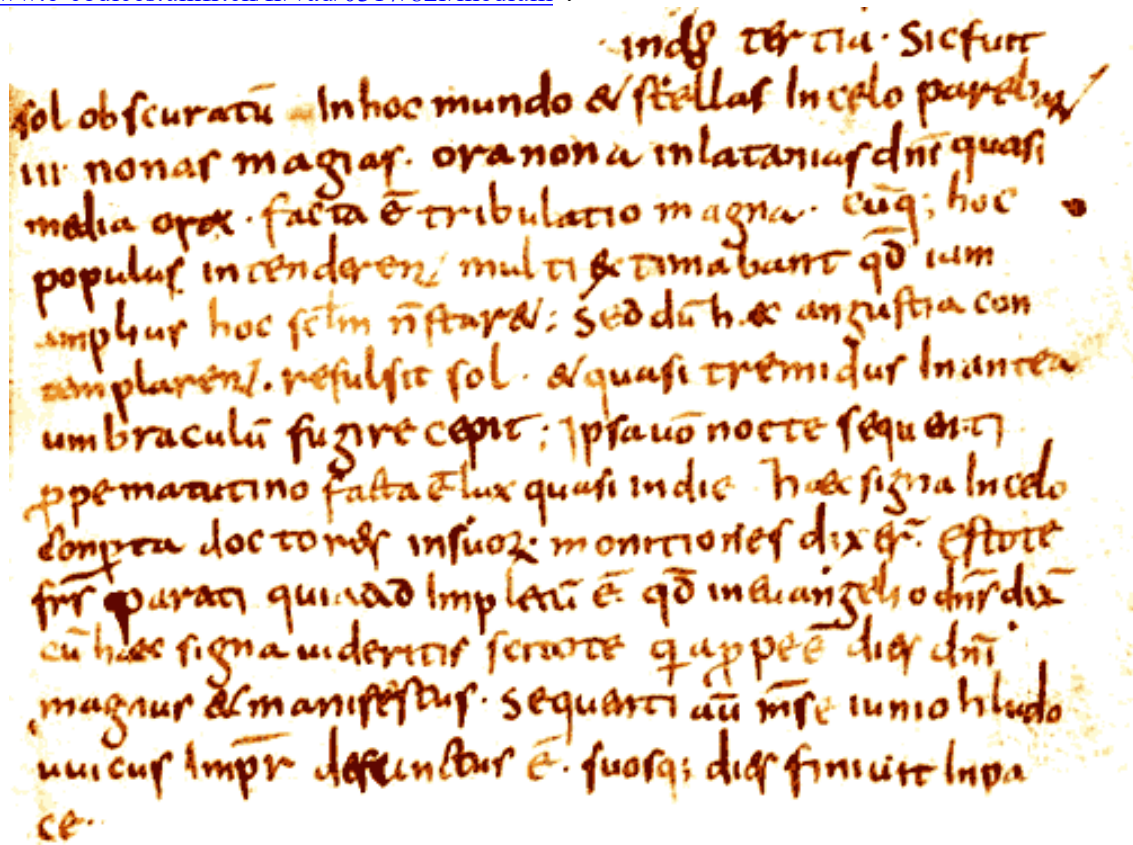 indẜ tertia · Sic fuit
sol obscuratū In hoc mundo & stellas In celo parebant
III nonas magias · ora nona in latanias dnī quasi
media ora · facta ē tribulatio magna · Cūq; hoc
populus intenderent multi extimabant qđ iam
amplius hoc sclm n̄ staret ; Sed dū haec angustia con
templarent . refulsit sol · & quasi tremidus In antea
umbraculū fugire cepit ; Ipsa uō nocte sequenti
ꝓpe matutino facta ē lux quasi in die haec signa In celo
conꝑta doctores in suoꝝ monitiones dixer̄ · Estote
frs̄ parati quia Impletū ē · qđ in euangelio dns̄ dix̄
cū haec signa uideritis scitote q aꝓpe ē dies dnī
magnus & manifestus · Sequenti aū mse iunio hludo
uuicus Impr̄ defunctus ē · suosq; dies finiuit In pa
ce ·